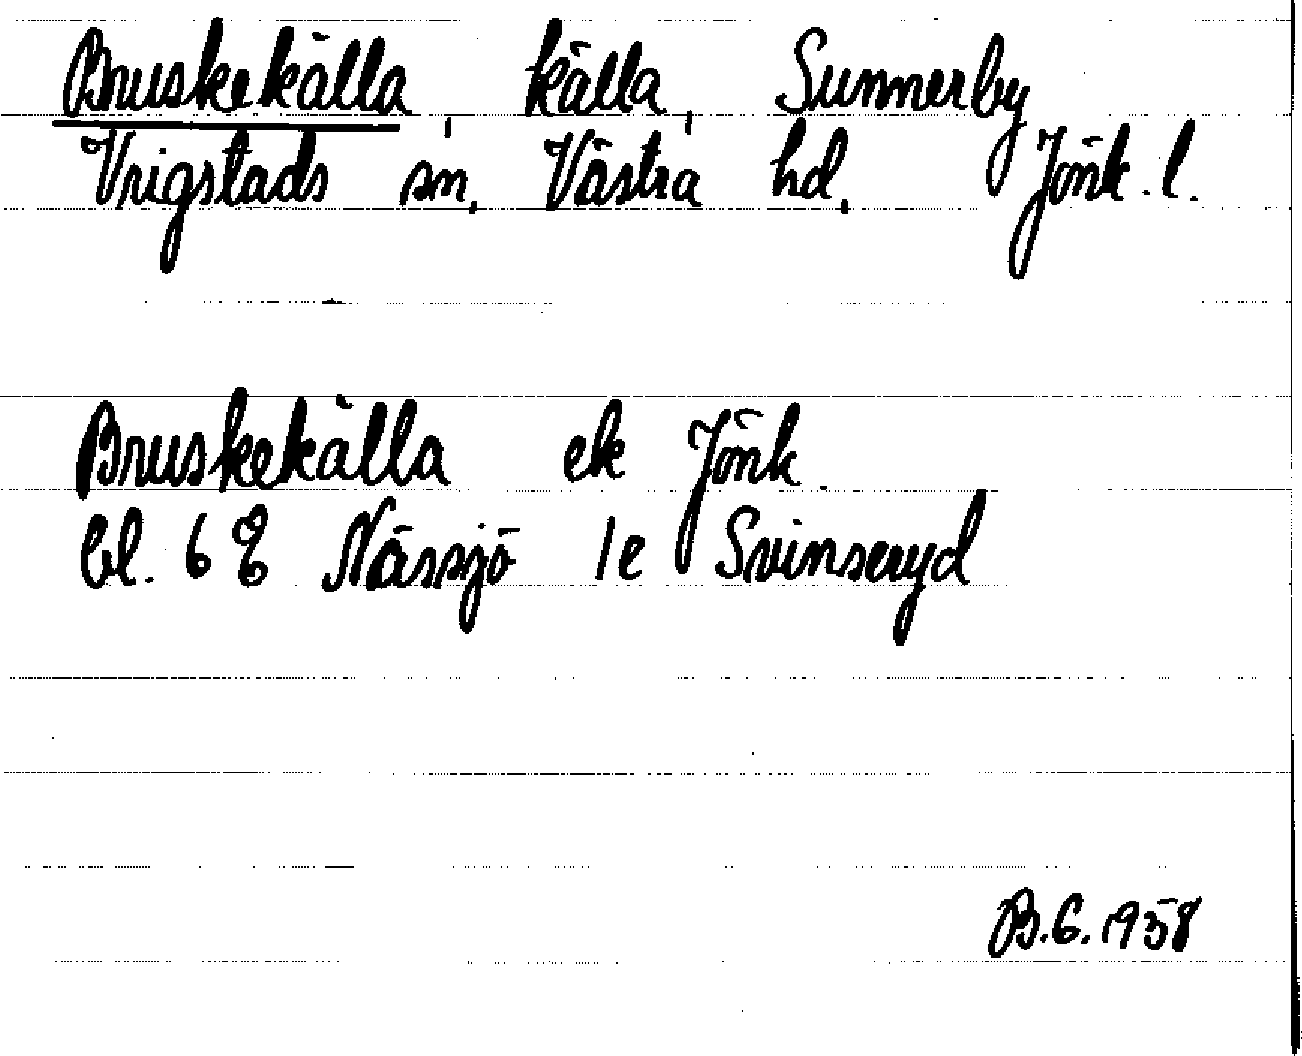 Bruskekälla, källa, Sunnerby
Vrigstads sn, Västra hd, Jönk. l.
Bruskekälla ek Jönk
bl. 6 E Nässjö 1e Svinseryd
B.G. 1958